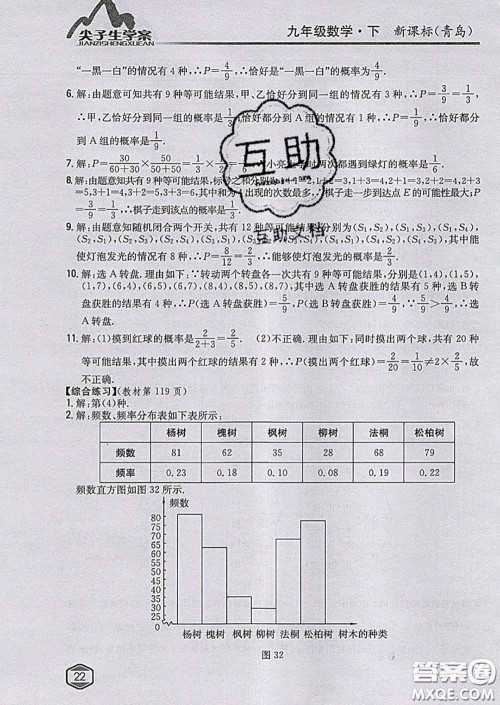 尖子生学案
JIANZISHENGXUEAN
九年级数学·下 新课标(青岛)
“一黑一白”的情况有4种,∴P=4/9,∴恰好是“一黑一白”的概率为4/9.
6.解:由题意可知共有9种等可能结果,甲、乙恰好分到同一组的概率为3/9=1/3,
∴甲、乙恰好分到同一组的概率为1/3,恰好都分到A组的情况有1种,∴恰好都分
到A组的概率为1/9.
7.解:P=30/(60+30)×50/(50+50)=1/3×
小亮
时两次都遇到绿灯的概率
8.解:由题意知共有9种等可能结果,标号之和分别为
2+1=3,2+2=4,2+3
=5,3+1=4,3+2=5,3+3=6,因为和为4出现的次数最多,∴棋子走一步到达点E的可能性最大;
P=3/9=1/3,∴棋子走到该点的概率为1/3.
9.解:由题意知随机闭合两个开关,共有12种等可能结果,分别为(S₁,S₂),(S₁,S₃),(S₁,S₄),
能使灯泡发光的情况有8种,∴P=8/12=2/3,∴能够使灯泡发光的概率为2/3.
10.解:选A转盘.理由如下:∵转动两个转盘各一次共有9种等可能结果,分别是(1,4),(1,5),
(1,7),(6,4),(6,5),(6,7),(8,4),(8,5),(8,7),其中A转盘获胜的结果有5种,B转
盘获胜的结果有4种,∴P(选A转盘获胜)=5/9,P(选B转盘获胜)=4/9,5/9>4/9,∴选
A转盘.
11.解:(1)摸到红球的概率是2/(2+3)=2/5. (2)不正确.理由如下:同时摸出两个球,共有20种
等可能结果,其中摸出两个红球的情况有2种,∴P(摸出两个红球)=2/20=1/10≠2×2/5,故
不正确.
【综合练习】(教材第119页)
1.解:第(4)种.
2.解:频数、频率分布表如下表所示:
杨树 槐树 枫树 柳树 法桐 松柏树
频数 81 62 35 28 68 79
频率 0.23 0.18 0.10 0.08 0.19 0.22
频数直方图如图32所示.
频数
80
75
70
65
60
55
50
45
40
35
30
25
20
15
10
杨树 槐树 枫树 柳树 法桐 松柏树 树木的种类
图32
22
互助
互助文档
答案圈
MXQE.COM